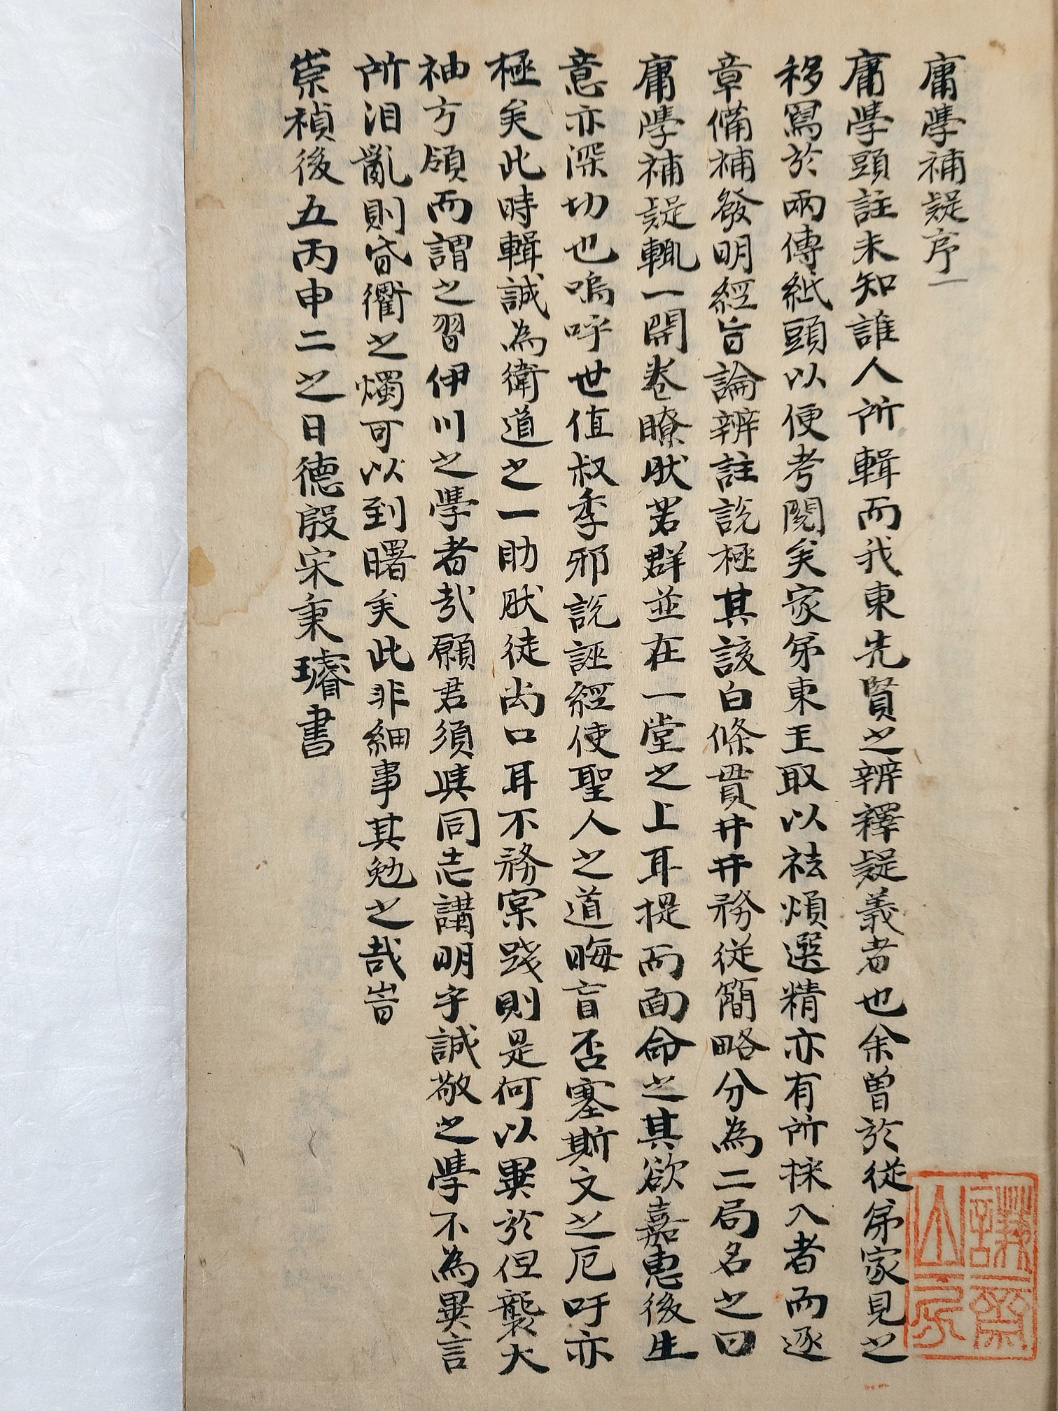 庸學補疑序一
庸學頭註未知誰人所輯而我東先賢之辨釋疑義者也余曾於從弟家見之
移寫於兩傳紙頭以便考閱矣家弟東玉取以祛煩選精亦有所採入者而逐
章備補發明經旨論辨註說極其該白條貫井井務從簡略分為二局名之曰
庸學補疑輒一開卷瞭然若群並在一堂之上耳提而面命之其欲嘉惠後生
意亦深切也嗚呼世值叔季邪說誣經使聖人之道晦盲否塞斯文之厄吁亦
極矣此時輯誠為衛道之一助然徒尚口耳不務案踐則是何以異於但襲大
袖方領而謂之習伊川之學者哉願君須與同志講明字誠敬之學不為異言
所汩亂則昏衢之燭可以到曙矣此非細事其勉之哉旹
崇禎後五丙申二之日德殷宋秉璿書